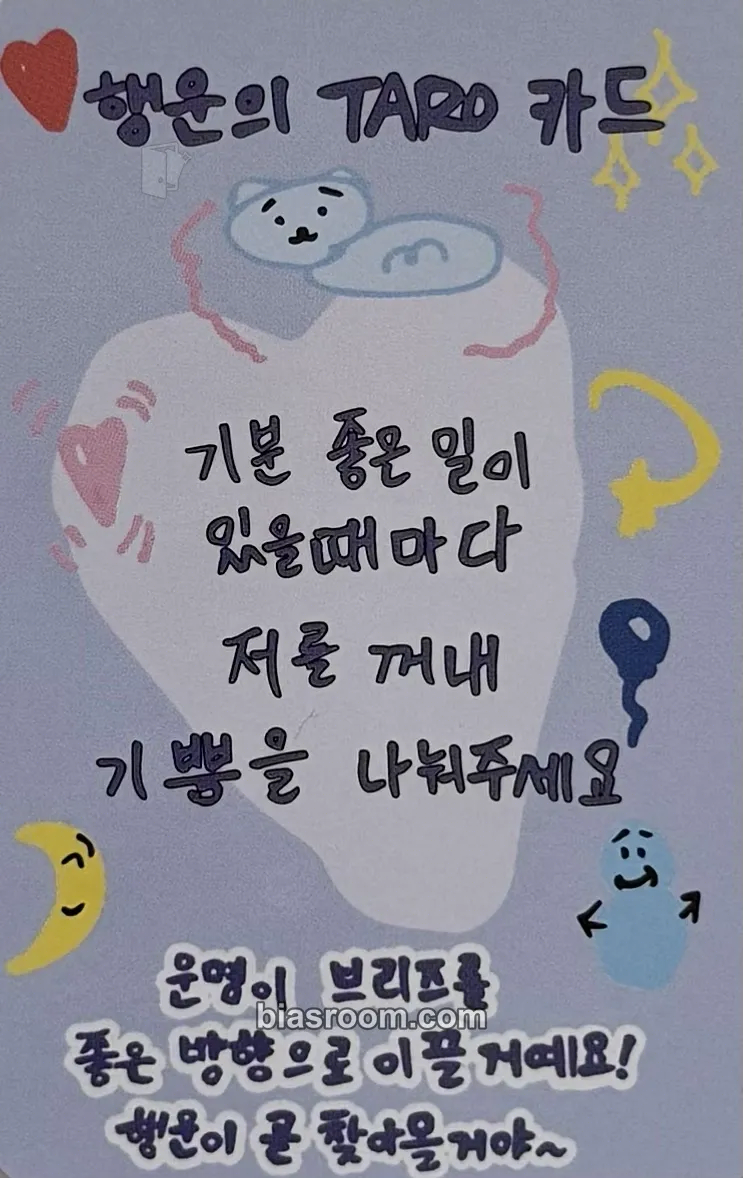 행운의 TARO 카드
기분 좋은 일이
있을때마다
저를 꺼내
기쁨을 나눠주세요
운명이 브리즈를
biasroom.com
좋은 방향으로 이끌거예요!
행운이 곧 찾아올거야~